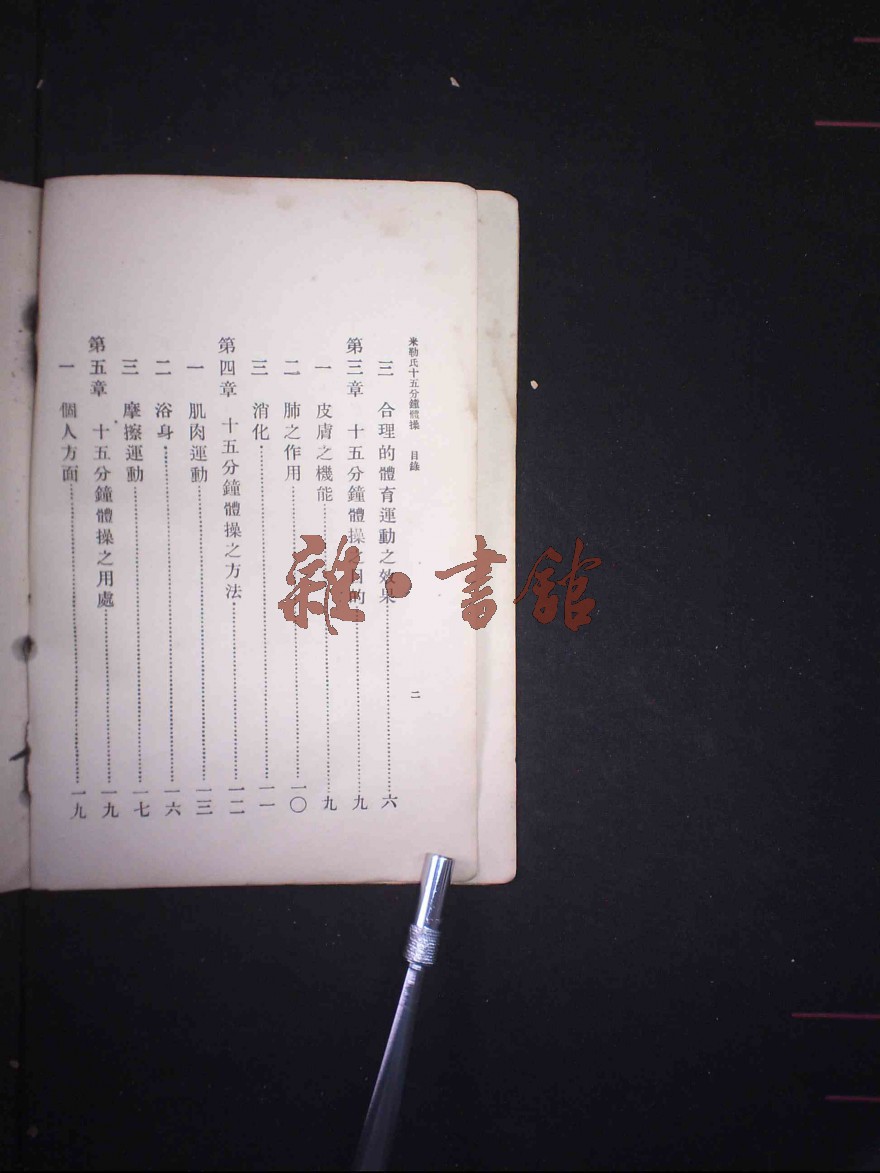 米勒氏十五分鐘體操 目錄 二
三 合理的體育運動之效果……六
第三章 十五分鐘體操之目的……九
一 皮膚之機能……九
二 肺之作用……一〇
三 消化……一一
第四章 十五分鐘體操之方法……一二
一 肌肉運動……一三
二 浴身……一六
三 摩擦運動……一七
第五章 十五分鐘體操之用處……一九
一 個人方面……一九
雜·書館